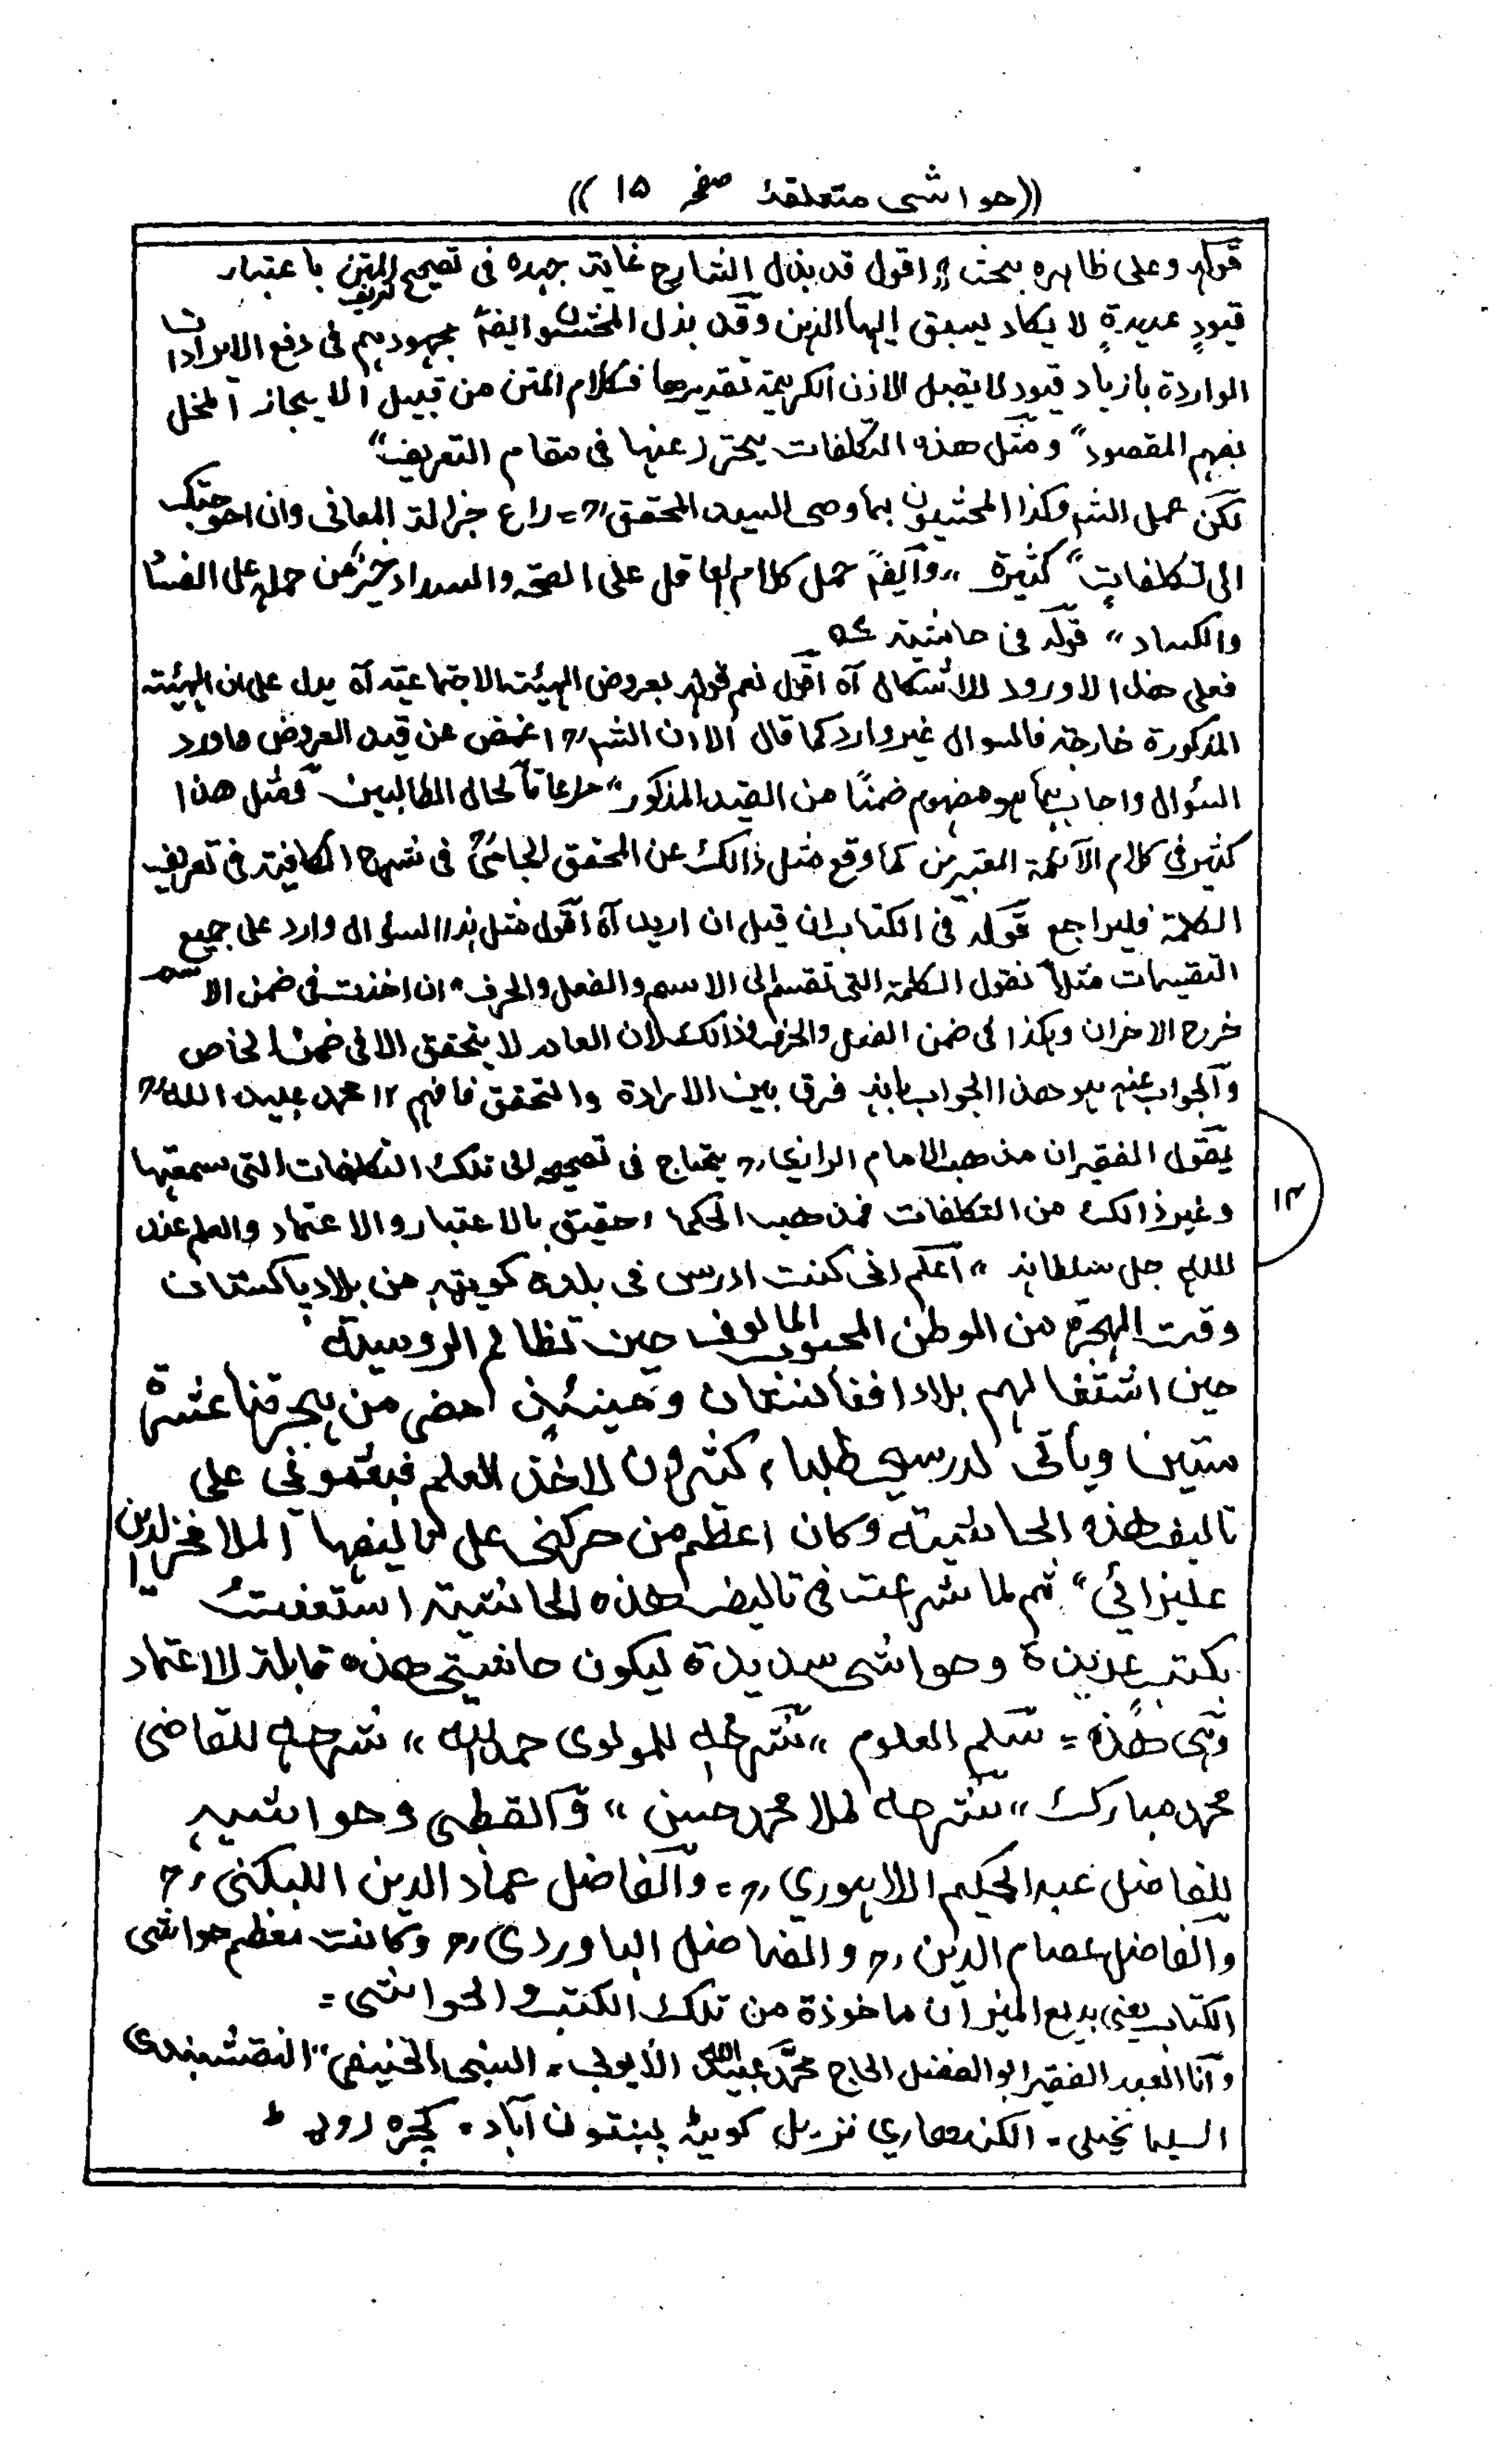 ((حواشی متعلقۂ صفحہ ۱۵))
قوله وعلى ظاهره بحث اقول قد بذل الشارح غاية جهده فى تصحيح تعريف المتن باعتبار
قيودٍ عديدةٍ لا يكاد يسبق اليها الذهن وقد بذل المحشون ايضًا مجهودهم فى دفع الايرادات
الواردة بازياد قيود لا تقبل الاذن الكريمة تقديرها فكلام المتن من قبيل الايجاز المخل
بفهم المقصود" ومثل هذه التكلفات يحترز عنها فى مقام التعريف"
لكن عمل الشارح وكذا المحشيون بما وصى السيد المحقق رح = راع جزالة المعانى وان احوجتك
الى تكلفاتٍ" كثيرة " وايضًا حمل كلام العاقل على الصحة والسداد خير من حمله على الفساد
والكساد" قوله فى حاشيته ۵
فعلى هذا لا ورود للاشكال آه اقول نعم قوله بعروض الهيئة الاجتماعية آه يدل على ان الهيئة
المذكورة خارجة فالسوال غير وارد كما قال الا ان الشارح رح اغمض عن قيد العروض فاورد
السؤال واجاب بما هو مفهوم ضمنًا من القيد المذكور" مراعاتًا لحال الطالبين فمثل هذا
كثير فى كلام الآئمة المعتبرين كما وقع مثل ذالك عن المحقق الجامىؒ فى شرح الكافية فى تعريف
الكلمة فليراجع قوله فى الكتاب ان قيل ان اريد آه اقول مثل هذا السؤال وارد على جميع
التقسيمات مثلاً نقول الكلمة التى تقسم الى الاسم والفعل والحرف" ان اخذت فى ضمن الاسم
خرج الاخران وهكذا فى ضمن الفعل والحرف وذالك لان العام لا يتحقق الا فى ضمن الخاص
والجواب عنه هو هذا الجواب بانه فرق بين الارادة والتحقق فافهم ۱۲ محمد عبيد الله رح
يقول الفقير ان مذهب الامام الرازى رح يحتاج فى تصحيحه الى تلك التكلفات التى سمعتها
وغير ذالك من التكلفات فمذهب الحكماء حقيق بالاعتبار والاعتماد والعلم عند
الله جل سلطانه " اعلم انى كنت ادرس فى بلدة كويته من بلاد پاكستان
وقت الهجرة من الوطن المحبوب المالوف حين تظالم الروسية
حين اشتغالهم بلاد افغانستان وحينئذٍ مضى من هجرتنا عشرة
سنين وياتى لدرسى طلباء كثيرون لاخذ العلم فبعثونى على
تاليف هذه الحاشية وكان اعظم من حركنى على تاليفها الملا فخرالدين
عليزائي" ثم لما شرعت فى تاليف هذه الحاشية استعنتُ
بكتبٍ عديدة وحواشى سديدة ليكون حاشيتى هذه قابلة للاعتماد
وهى هذه = سلم العلوم " شرحه للمولوى حمد الله " شرحه للقاضى
محمد مبارك " شرحه لملا محمد حسن " والقطبى وحواشيه
للفاضل عبد الحكيم اللاهوري رح = والفاضل عماد الدين اللبكنى رح
والفاضل عصام الدين رح والفاضل الباوردى رح وكانت معظم حواشى
الكتاب يعنى بديع الميزان ماخوذة من تلك الكتب والحواشى =
وانا العبد الفقير ابو الفضل الحاج محمد عبيد الله الأيوبى = السنى الحنيفى" النقشبندى
السليمانخيلى = الكندهاري نزيل كويٹه پښتون آباد = كچره روڈ
۱۳